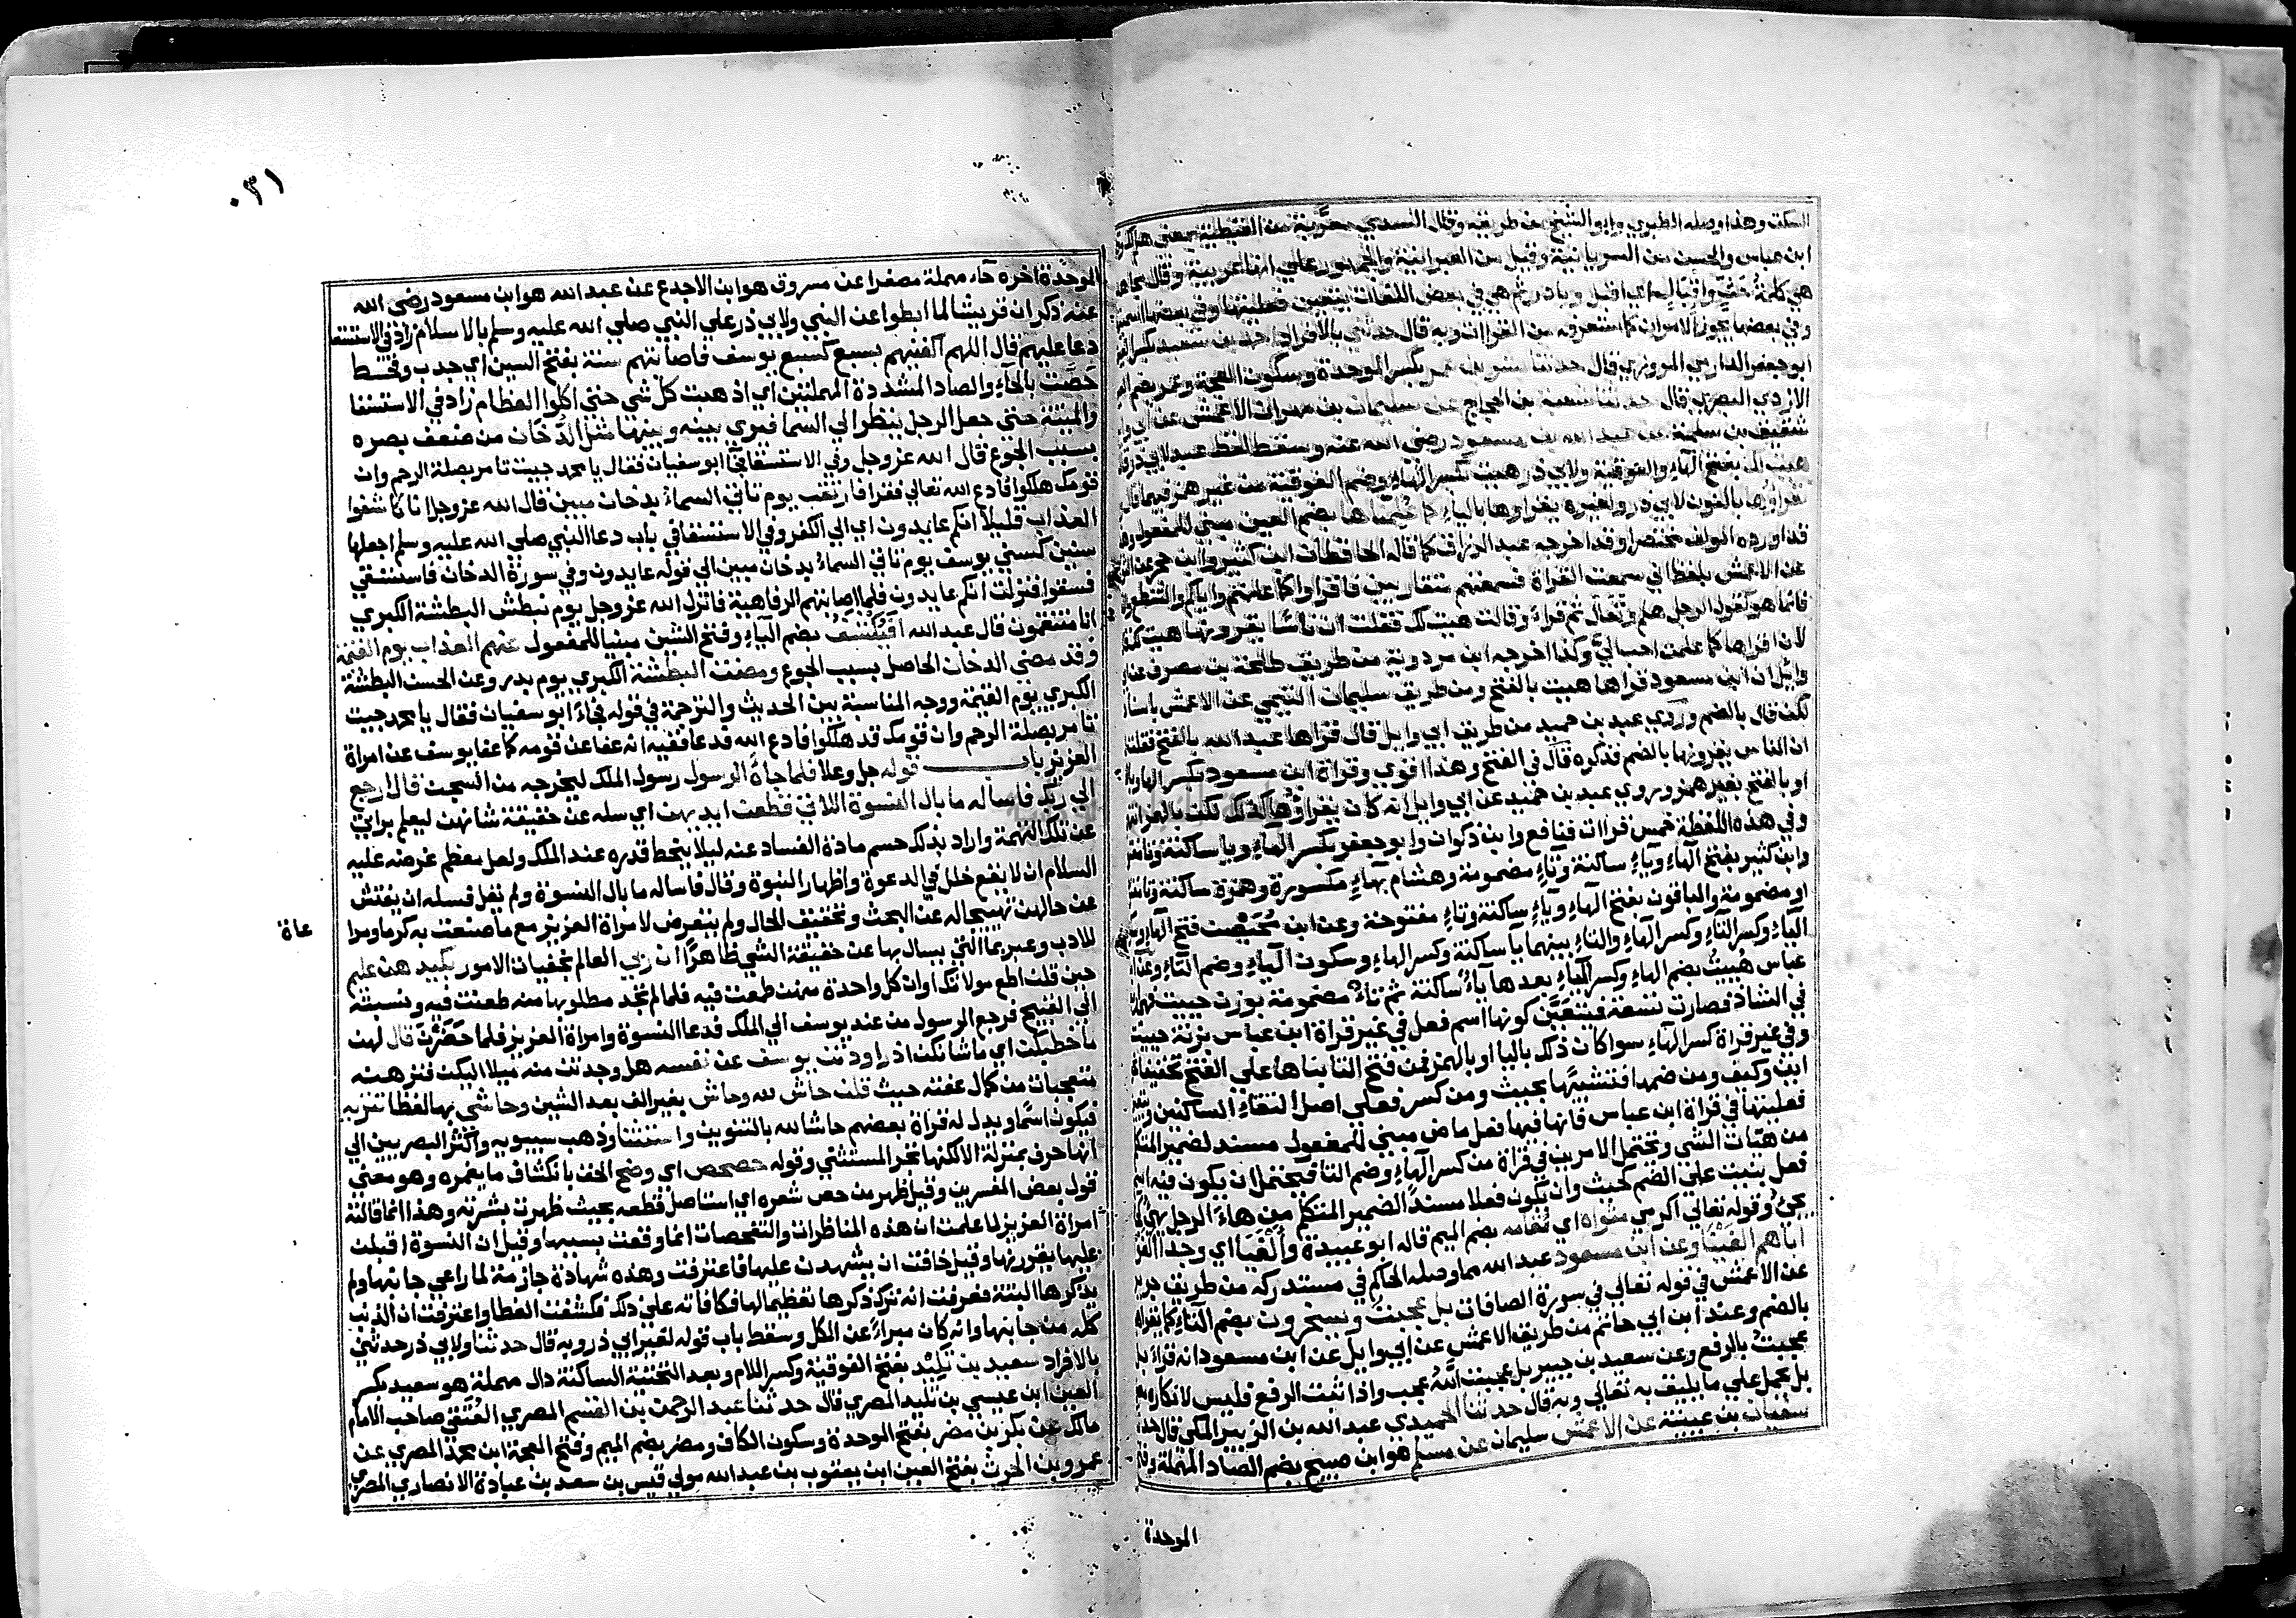 السكت وهذا وصله الطبري وابو الشيخ من طريقه وقال السدي معربة من القبطية بمعنى هلم لك وعن
ابن عباس والحسن من السريانية وقيل من العبرانية والجمهور علي انها عربية وقال مجاهد
هي كلمة حث واقبال اي اقبل وبادر ثم هي في بعض اللغات يتعين فعليتها وفي بعضها اسميتها
وفي بعضها يجوز الامران كما ستعرفه من القراات وبه قال حدثني بالافراد احمد بن سعيد بكسر العين
ابو جعفر الدارمي المروزي قال حدثنا بشر بن عمر بكسر الموحدة وسكون المعجمة وعمر بضم العين
الازدي البصري قال حدثنا شعبة بن الحجاج عن سليمان بن مهران الاعمش عن ابي وائل
شقيق بن سلمة عن عبد الله بن مسعود رضي الله عنه وسقط لفظ عبد الله لابي ذر قال
هيت لك بفتح الهاء والفوقية ولابي ذر هيت بكسر الهاء وضم الفوقية من غير همز فيهما قال
نقراؤها بالنون لابي ذر ولغيره يقراوها بالياء كما علمناها بضم العين مبني للمفعول وهذا
قد اورده المولف مختصرا وقد اخرجه عبد الرزاق كما قاله الحافظان ابن كثير وابن حجر عن الثوري
عن الاعمش بلفظ اني سمعت القراة فسمعتهم متقاربين فاقراوا كما علمتم واياكم والتنطع
فانما هو كقول الرجل هلم وتعال ثم قراء وقالت هيت لك فقلت ان ناسا يقرونها هيت لك قال
لان اقراها كما علمت احب الي وكذا اخرجه ابن مردوية من طريق طلحة بن مصرف عن ابي
وائل ان ابن مسعود قراها هيت بالفتح ومن طريق سليمان التيمي عن الاعمش باسناده
لكن قال بالضم وروي عبد بن حميد من طريق ابي وايل قال قراها عبد الله بالفتح فقلت
ان الناس يقرونها بالضم فذكره قال في الفتح وهذا اقوي وقراة ابن مسعود بكسر الهاء وبالضم
او بالفتح بغير همز وروي عبد بن حميد عن ابي وايل انه كان يقراؤها كذلك لكن بالهمز انتهي
وفي هذه اللفظة خمس قراات فنافع وابن ذكوان وابو جعفر بكسر الهاء ويا ساكنة وتا مفتوحة
وابن كثير بفتح الهاء وياء ساكنة وتاء مضمومة وهشام بهاء مكسورة وهمزة ساكنة وتا مفتوحة
او مضمومة والباقون بفتح الهاء وياء ساكنة وتاء مفتوحة وعن ابن محيصن فتح الهاء وسكون
الياء وكسر التاء وكسر الهاء والتاء بينهما يا ساكنة وكسر الهاء وسكون الياء وضم التاء وعن ابن
عباس هييت بضم الهاء وكسر الياء بعدها ياء ساكنة ثم تاء مضمومة بوزن حييت فهي اربعة
في الشاذ فصارت تسعة فتتعين كونها اسم فعل في غير قراة ابن عباس بزنة حييت
وفي غير قراة كسر الهاء سوا كان ذلك باليا او بالهمز فمن فتح التا بناها علي الفتح تخفيفا نحو
اين وكيف ومن ضمها فتشبيها بحيث ومن كسر فعلي اصل التقاء الساكنين وتتعين
فعليتها في قراة ابن عباس فانها فيها فعل ماض مبني للمفعول مسند لضمير المتكلم
من هيات الشي وتحتمل الامرين في قراة من كسر الهاء وضم التا فيحتمل ان يكون فيه اسم
فعل بنيت علي الضم كحيث وان يكون فعلا مسندا لضمير المتكلم من هاء الرجل يهيء كجاء
يجيء وقوله تعالي اكرمي مثواه اي مقامه بضم الميم قاله ابو عبيدة والفيا اي وجدا الفوا
اباهم الفينا وعن ابن مسعود عبد الله مما وصله الحاكم في مستدركه من طريق جرير
عن الاعمش في قوله تعالي في سورة الصافات بل عجبت ويسخرون بضم التاء كما يقراه
بالضم وعند ابن ابي حاتم من طريق الاعمش عن ابي وايل عن ابن مسعود انه قراء بل
عجبت بالرفع وعن سعيد بن جبير بل عجبت الله عجب واذا ثبت الرفع فليس لانكاره
بل يحمل علي ما يليق به تعالي وبه قال حدثنا الحميدي عبد الله بن الزبير المكي قال حدثنا
سفيان بن عيينة عن الاعمش سليمان عن مسلم هو ابن صبيح بضم الصاد المهملة وفتح
الموحدة
٠٣١
الموحدة اخره حاء مهملة مصغرا عن مسروق هو ابن الاجدع عن عبد الله هو ابن مسعود رضي الله
عنه ذكر ان قريشا لما ابطوا عن النبي ولابي ذر علي النبي صلي الله عليه وسلم بالاسلام زاد في الاستسقا
دعا عليهم قال اللهم اكفنيهم بسبع كسبع يوسف فاصابتهم سنة بفتح السين اي جدب وقحط
حصت بالحاء والصاد المشددة المهملتين اي اذهبت كل شي حتي اكلوا العظام زاد في الاستسقا
والميتة حتي جعل الرجل ينظر الي السما فيري بينه وبينها مثل الدخان من ضعف بصره
بسبب الجوع قال الله عز وجل وفي الاستسقا فجاء ابو سفيان فقال يا محمد جيت تامر بصلة الرحم وان
قومك هلكوا فادع الله تعالي فقرا فارتقب يوم تاتي السماء بدخان مبين قال الله عز وجل انا كاشفوا
العذاب قليلا انكم عايدون اي الي الكفر وفي الاستسقا في باب دعا النبي صلي الله عليه وسلم اجعلها
سنين كسني يوسف يوم تاتي السماء بدخان مبين الي قوله عايدون وفي سورة الدخان فاستسقي
فسقوا فنزلت انكم عايدون فلما اصابتهم الرفاهية فانزل الله عز وجل يوم نبطش البطشة الكبري
انا منتقمون قال عبد الله افيكشف بضم الياء وفتح الشين مبنيا للمفعول عنهم العذاب يوم القيمة
وقد مضي الدخان الحاصل بسبب الجوع ومضت البطشة الكبري يوم بدر وعن الحسن البطشة
الكبري يوم القيمة ووجه المناسبة بين الحديث والترجمة في قوله فجاء ابو سفيان فقال يا محمد جيت
تامر بصلة الرحم وان قومك قد هلكوا فادع الله فدعا ففيه انه عفا عن قومه كما عفا يوسف عن امراة
العزيز باب قوله جل وعلا فلما جاة الرسول رسول الملك ليخرجه من السجن قال ارجع
الي ربك فاساله ما بال النسوة اللاتي قطعن ايديهن اي سله عن حقيقة شانهن ليعلم براتي
عن تلك التهمة واراد بذلك حسم مادة الفساد عنه ليلا ينحط قدره عند الملك ولعل معظم غرضه عليه
السلام ان لا يقع خلل في الدعوة واظهار النبوة وقال فاساله ما بال النسوة ولم يقل فسله ان يفتش
عن حالهن تهييجا له عن البحث وتحقيق الحال ولم يتعرض لامراة العزيز مع ما صنعت به كرما ومرا
عاة
للادب وعبر بما التي يسال بها عن حقيقة الشي ظاهرا ان ربي العالم بخفيات الامور بكيدهن عليم
حين قلن اطع مولاتك اوان كل واحدة منهن طمعت فيه فلما لم تجد مطلوبها منه طعنت فيه ونسبته
الي القبيح فرجع الرسول من عند يوسف الي الملك فدعا النسوة وامراة العزيز فلما حضرن قال لهن
ما خطبكن اي ما شانكن اذ راودتن يوسف عن نفسه هل وجدتن منه ميلا اليكن فنزهنه
متعجبات من كمال عفته حيث قلن حاش لله وحاش بغير الف بعد الشين وحاشي بها لفظا تنزيه
فيكون اسما ويدل له قراة بعضهم حاشا لله بالتنوين واستثنا وذهب سيبويه واكثر البصريين الي
انها حرف بمنزلة الا لكنها تجر المستثني وقوله حصحص اي وضح الحق بانكشاف ما يغمره وهو معني
قول بعض المفسرين وقيل ظهر من حص شعره اي استاصل قطعه بحيث ظهرت بشرته وهذا انما قالته
امراة العزيز لما علمت ان هذه المناظرات والتفحصات انما وقعت بسببها وقيل ان النسوة اقبلن
عليها يقررنها وقيل خافت ان يشهدن عليها فاعترفت وهذه شهادة جازمة لما راعي جانبها ولم
يذكرها البتة فعرفت انه ترك ذكرها تعظيما لها فكافاته علي ذلك فكشفت الغطا واعترفت ان الذنب
كله من جانبها وانه كان مبراء عن الكل وسقط باب قوله لغير ابي ذر وبه قال حدثنا ولابي ذر حدثني
بالافراد سعيد بن تليد بفتح الفوقية وكسر اللام وبعد التحتية الساكنة دال مهملة هو سعيد بكسر
العين ابن عيسي بن تليد المصري قال حدثنا عبد الرحمن بن القسم المصري العتقي صاحب الامام
مالك عن بكر بن مضر بفتح الموحدة وسكون الكاف ومضر بضم الميم وفتح المعجمة ابن محمد المصري عن
عمرو بن الحرث بفتح العين ابن يعقوب بن عبد الله مولي قيس بن سعد بن عبادة الانصاري المصري